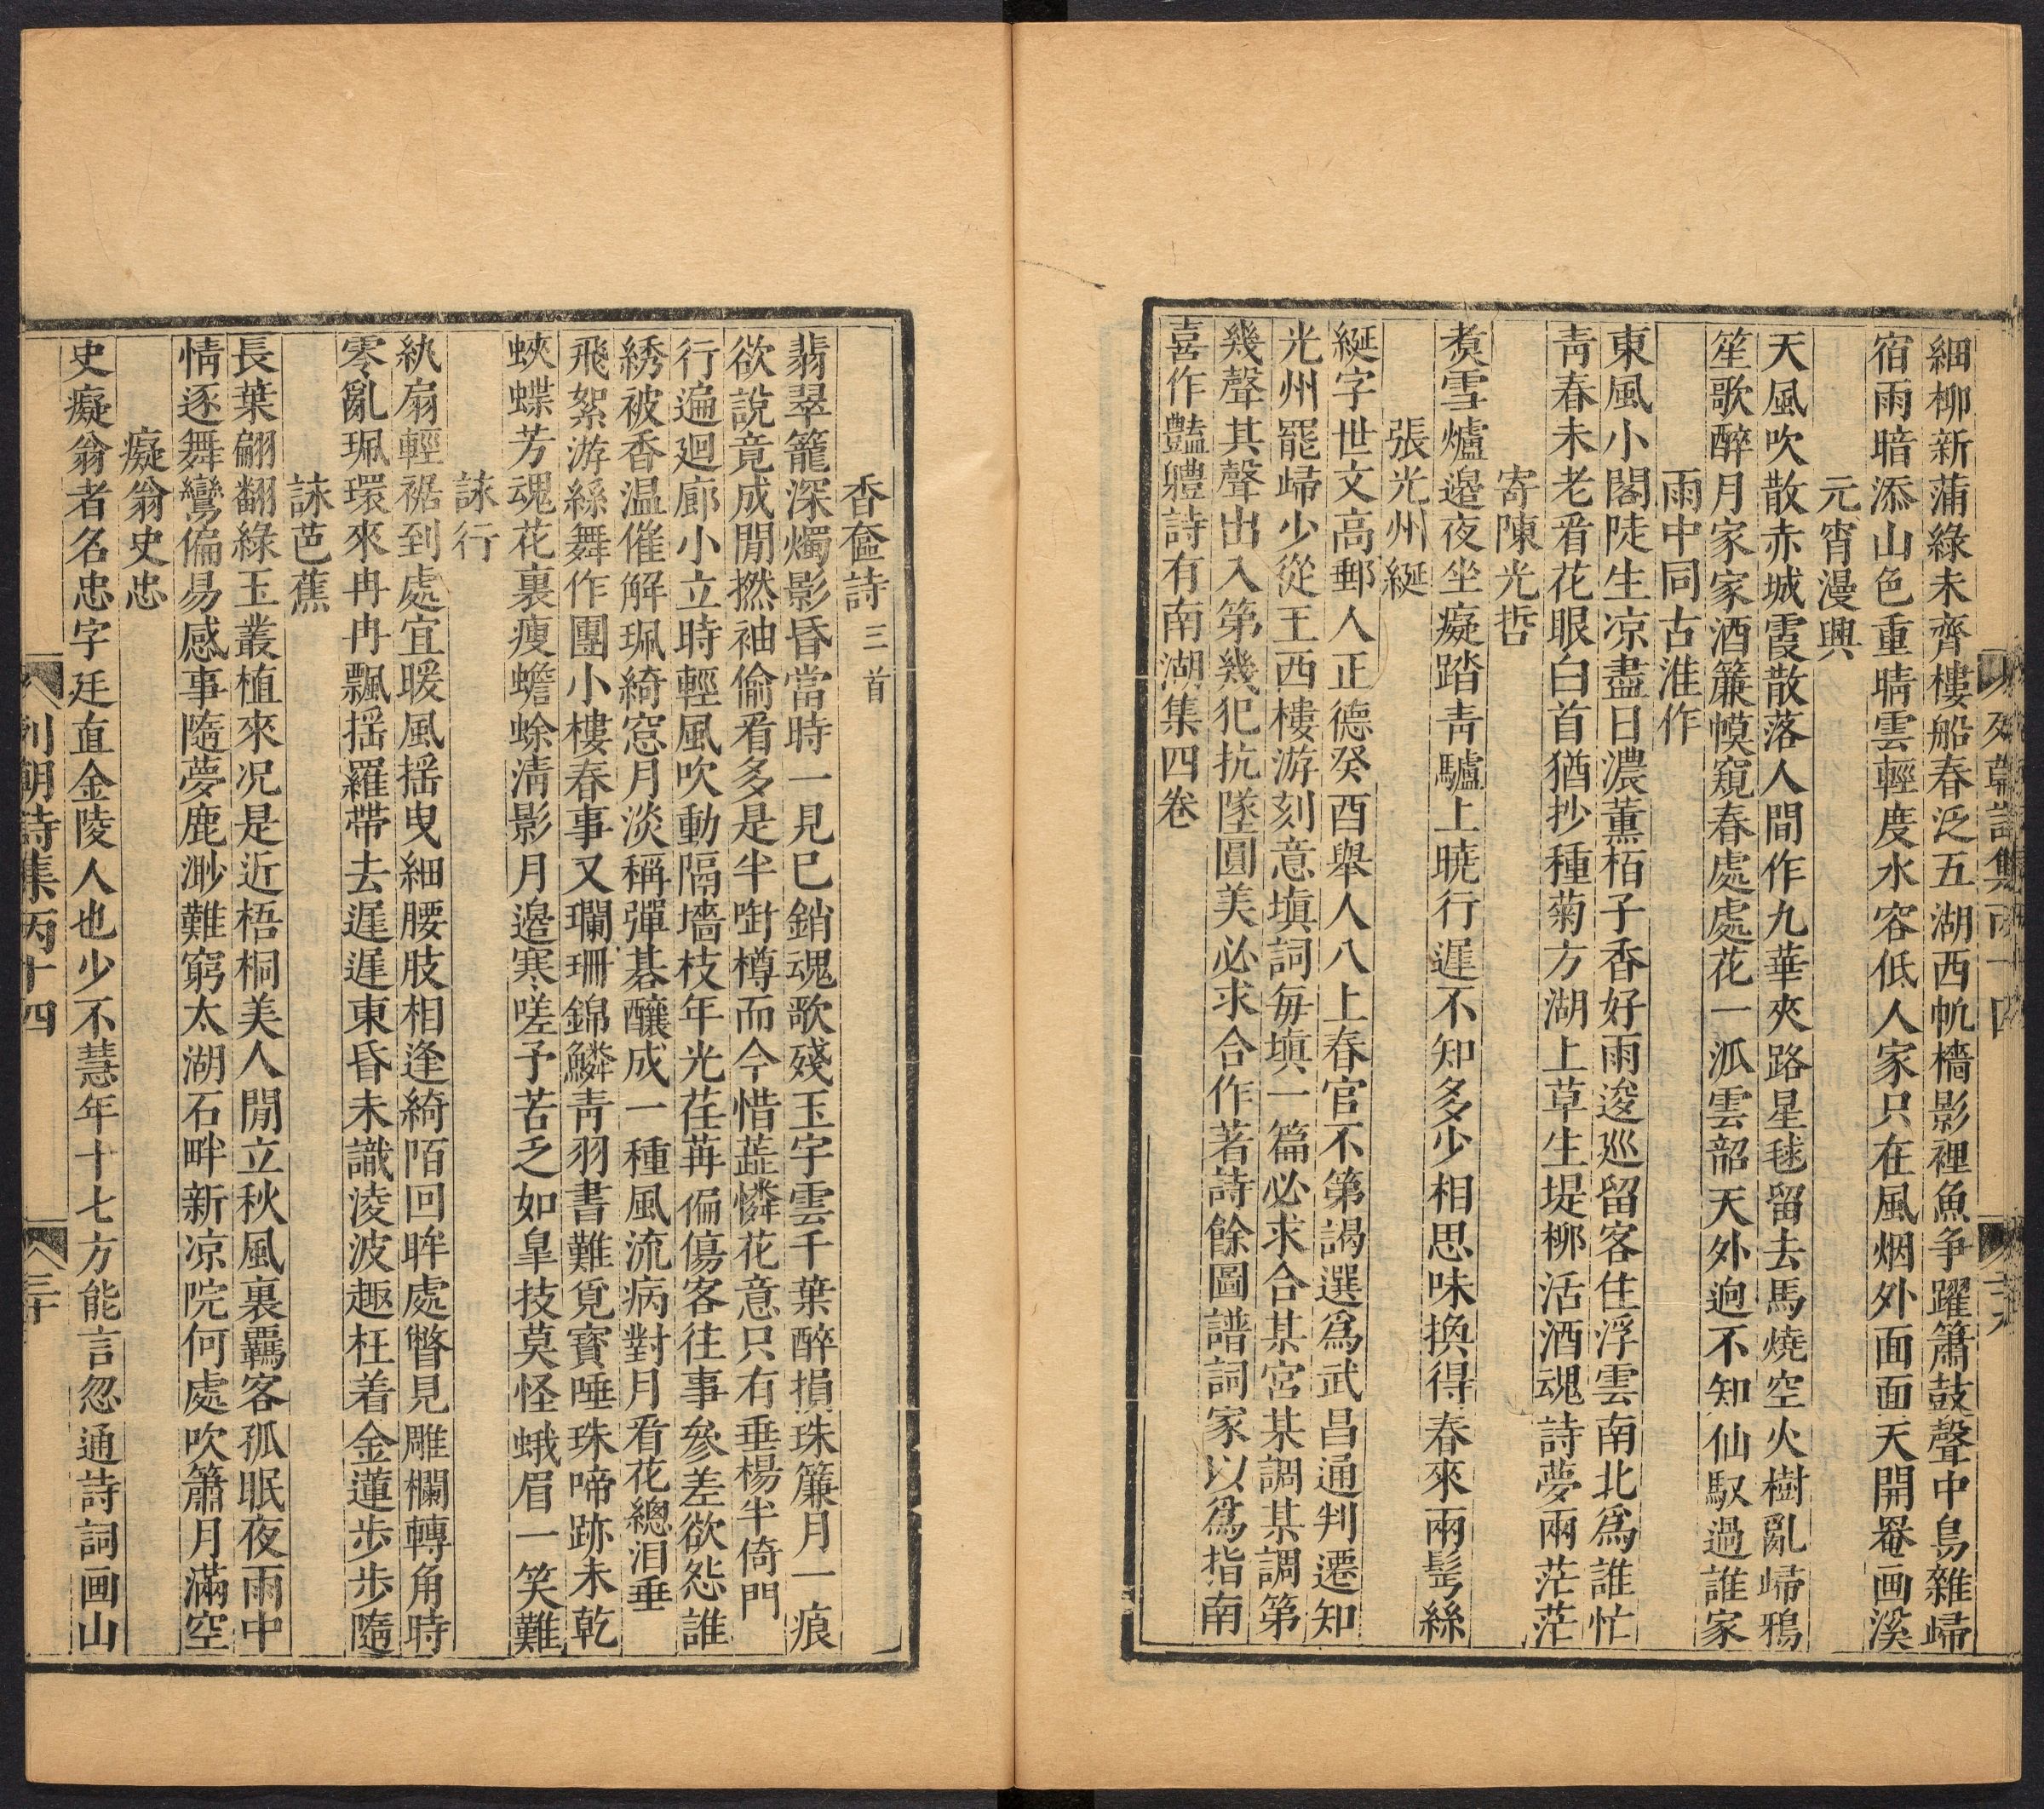 列朝詩集丙十四
二十九
細柳新蒲綠未齊樓船春泛五湖西帆檣影裡魚争躍簫鼓聲中鳥雜歸
宿雨暗添山色重晴雲輕度水容低人家只在風烟外面面天開罨画溪
元宵漫興
天風吹散赤城霞散落人間作九華夾路星毬留去馬燒空火樹亂歸鴉
笙歌醉月家家酒簾幙窺春處處花一派雲韶天外逈不知仙馭過誰家
雨中同古淮作
東風小閣陡生凉盡日濃薰栢子香好雨逡巡留客住浮雲南北爲誰忙
靑春未老看花眼白首猶抄種菊方湖上草生堤柳活酒魂詩夢兩茫茫
寄陳光哲
煑雪爐邉夜坐癡踏靑驢上曉行遲不知多少相思味換得春來兩髩絲
張光州綖
綖字世文高郵人正德癸酉舉人八上春官不第謁選爲武昌通判遷知
光州罷歸少從王西樓游刻意塡詞每塡一篇必求合某宮某調某調第
幾聲其聲出入第幾犯抗墜圓美必求合作著詩餘圖譜詞家以爲指南
喜作豔體詩有南湖集四卷
香奩詩三首
翡翠籠深燭影昏當時一見巳銷魂歌殘玉宇雲千葉醉損珠簾月一痕
欲說竟成閒撚袖偷看多是半㗸樽而今惜蕋憐花意只有垂楊半倚門
行遍廻廊小立時輕風吹動隔墻枝年光荏苒偏傷客往事參差欲怨誰
綉被香温催解珮綺窓月淡稱彈碁釀成一種風流病對月看花總泪垂
飛絮游絲舞作團小樓春事又瓓珊錦鱗靑羽書難覓寳唾珠啼跡未乾
蛺蝶芳魂花裏瘦蟾蜍淸影月邉寒嗟予苦乏如臯技莫怪蛾眉一笑難
詠行
紈扇輕裾到處宜暖風揺曳細腰肢相逢綺陌回眸處瞥見雕欄轉角時
零亂珮環來冉冉飄揺羅帶去遲遲東昏未識淩波趣枉着金蓮步步隨
詠芭蕉
長葉翩翻綠玉叢植來况是近梧桐美人閒立秋風裏羈客孤眠夜雨中
情逐舞鸞偏易感事隨夢鹿渺難窮太湖石畔新凉院何處吹簫月滿空
癡翁史忠
史癡翁者名忠字廷直金陵人也少不慧年十七方能言忽通詩詞画山
列朝詩集丙十四
三十